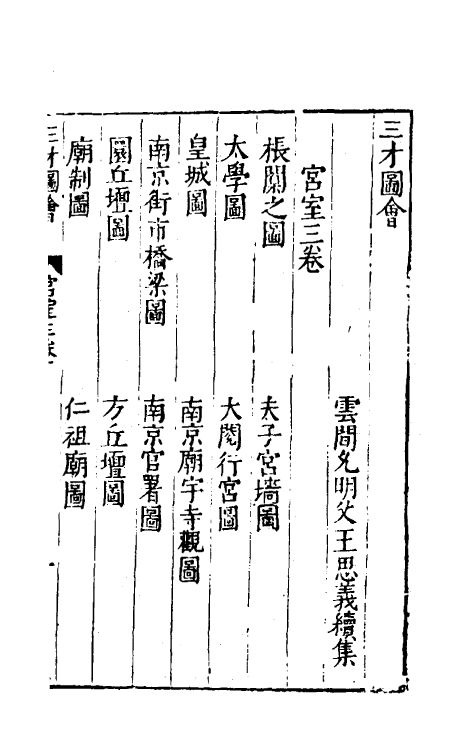 三才圖會
雲間允明父王思義續集
宮室三卷
棖闑之圖
夫子宮墻圖
太學圖
大閱行宮圖
皇城圖
南京廟宇寺觀圖
南京街市橋梁圖
南京官署圖
圜丘壇圖
方丘壇圖
廟制圖
仁祖廟圖
三才圖會
宮室三卷
一